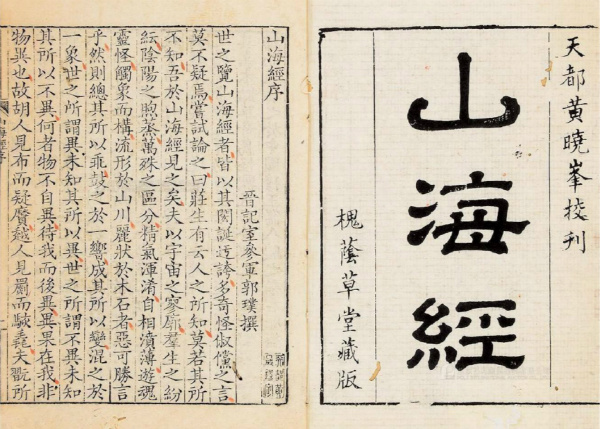 天都黃曉峯挍刊
山海經
槐蔭草堂藏版
山海經序
晉記室參軍郭璞撰
世之覽山海經者皆以其閎誕迂誇多奇怪俶儻之言
莫不疑焉嘗試論之曰莊生有云人之所知莫若其所
不知吾於山海經見之矣夫以宇宙之寥廓羣生之紛
紜陰陽之煦蒸萬殊之區分精氣渾淆自相濆薄遊魂
靈怪觸象而構流形於山川麗狀於木石者惡可勝言
乎然則總其所以乖鼓之於一響成其所以變混之於
一象世之所謂異未知其所以異世之所謂不異未知
其所以不異何者物不自異待我而後異異果在我非
物異也故胡人見布而疑黂越人見罽而駭毳夫翫所